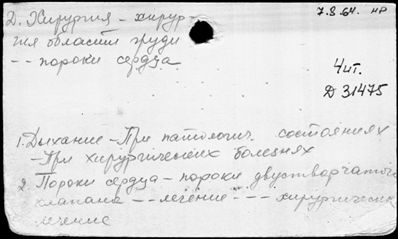 2. Хирургия - хирур-
гия области груди
-- пороки сердца
7.8.64. нр
Чит.
Д 31475
1. Дыхание - При патологич. состояниях
- При хирургических болезнях
2. Пороки сердца - пороки двустворчатого
клапана -- лечение --- хирургическ
лечение